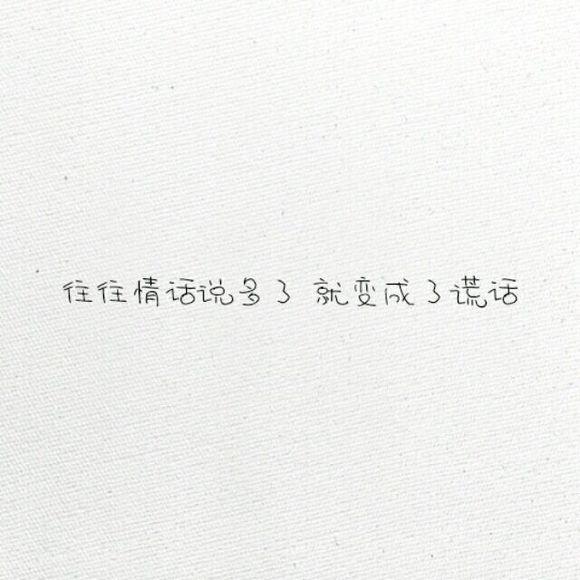 往往情话说多了 就变成了谎话